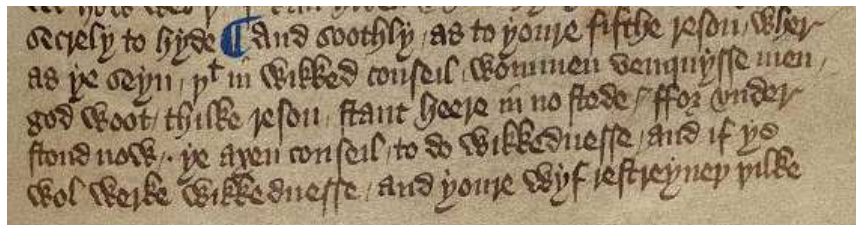 secrely to hyde ¶ And soothly / as to youre fifthe reson / wher
as ye seyn / þt in wikked conseil / wommen venquysse men /
god woot / thilke reson / stant heere in no stede / ffor vnder
stond now / ye axen conseil / to do wikkednesse / and if ye
wol werke wikkednesse / and youre wyf restreyneþ þilke